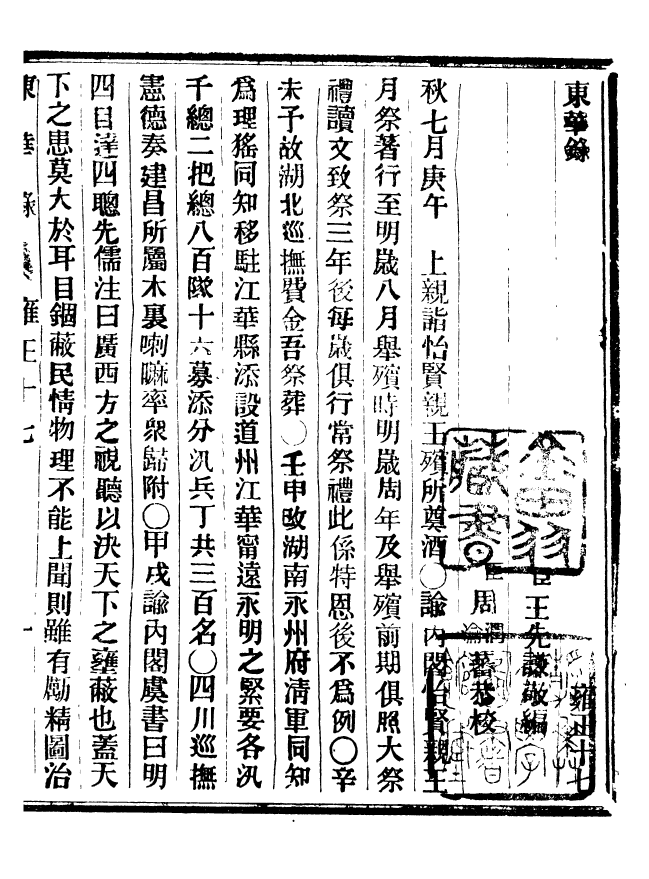 東華錄
雍正十七
臣王先謙敬編
臣周潤蕃周瀹蕃恭校
秋七月庚午　上親詣怡賢親王殯所奠酒〇諭內閣怡賢親王
月祭著行至明歲八月舉殯時明歲周年及舉殯前期俱照大祭
禮讀文致祭三年後每歲俱行常祭禮此係特恩後不爲例〇辛
未予故湖北巡撫費金吾祭葬〇壬申改湖南永州府淸軍同知
爲理猺同知移駐江華縣添設道州江華甯遠永明之緊要各汛
千總二把總八百隊十六募添分汛兵丁共三百名〇四川巡撫
憲德奏建昌所屬木裏喇嘛率衆歸附〇甲戌諭內閣虞書曰明
四目達四聰先儒注曰廣四方之視聽以決天下之壅蔽也蓋天
下之患莫大於耳目錮蔽民情物理不能上聞則雖有勵精圖治
東華錄 雍正十七 一